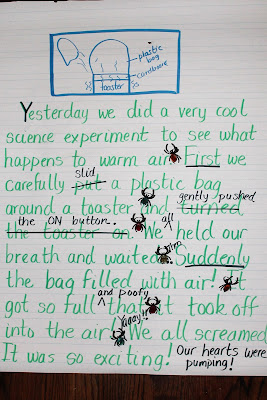 plastic
bag
cardboard
toaster
Yesterday we did a very cool
science experiment to see what
happens to warm air. First we
slid
carefully put a plastic bag
gently pushed
around a toaster and turned
the ON button. all
the toaster on. We held our
breath and waited. Suddenly
the bag filled with air! It
and poofy
got so full that it took off
Yaaay!!
into the air! We all screamed.
It was so exciting! Our hearts were
pumping!